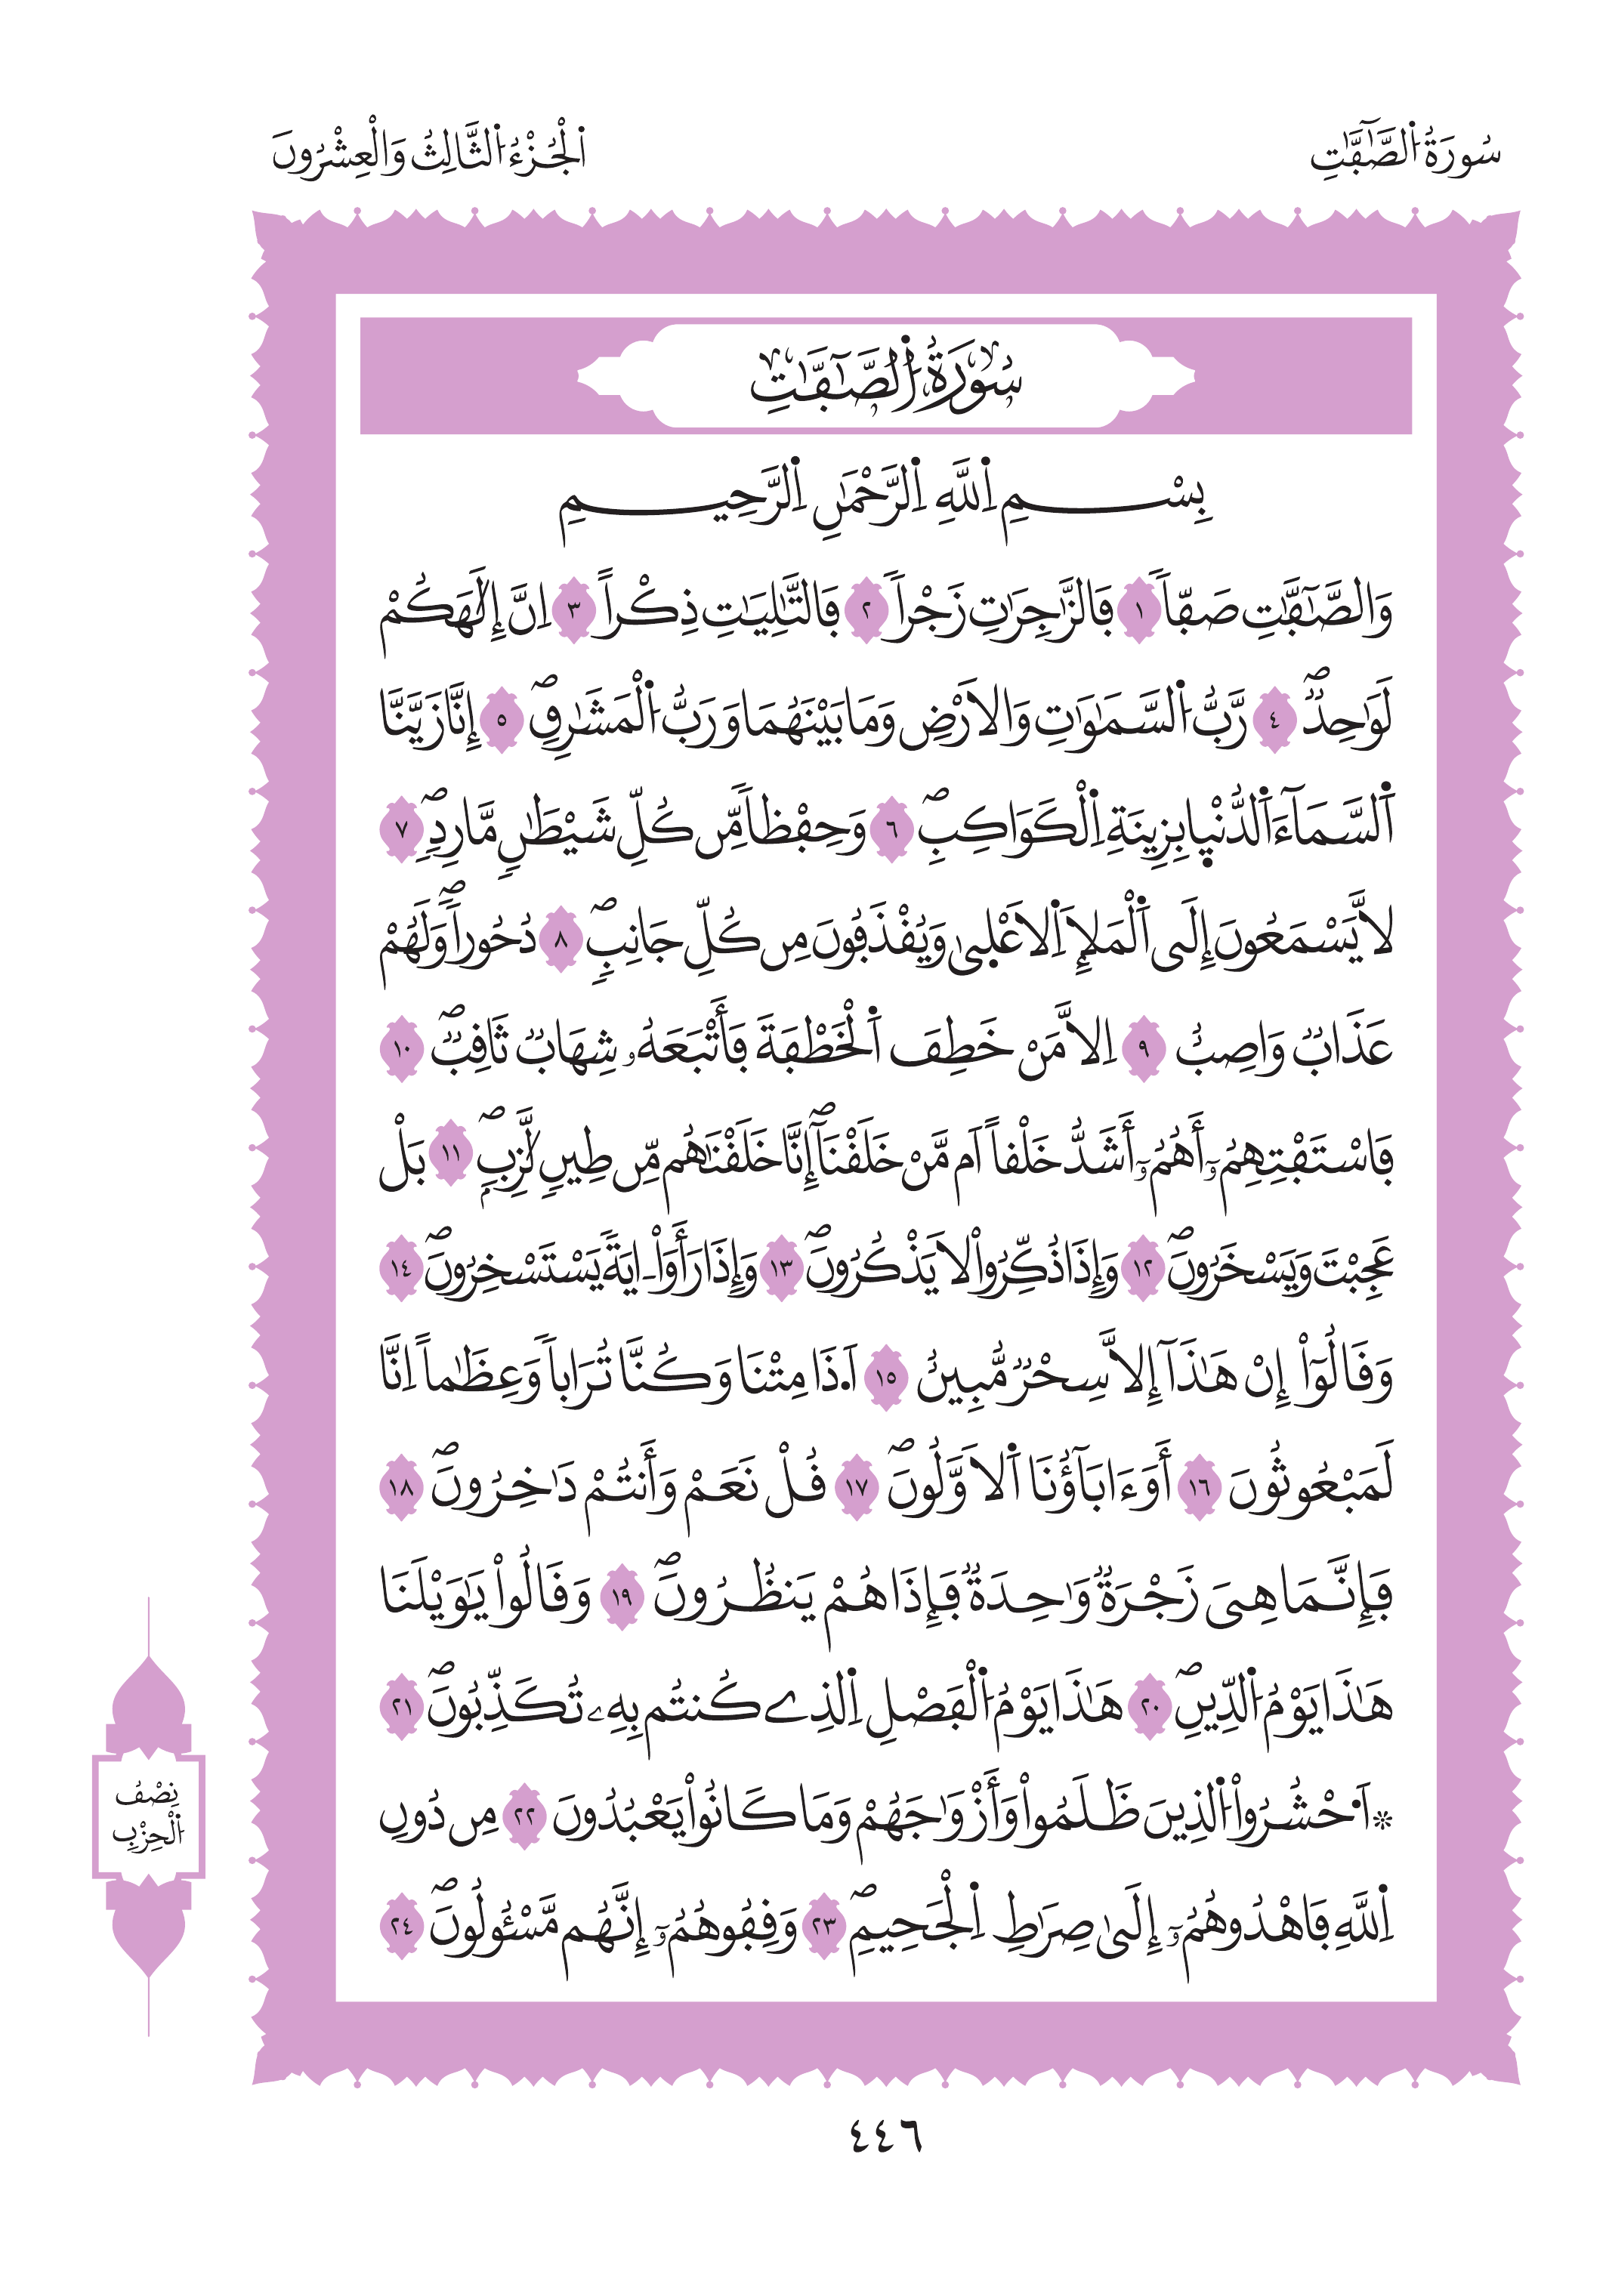 سُورَةُ الصَّٰٓفَّٰتِ
اَلْجُزْءُ الثَّالِثُ وَالْعِشْرُونَ
سُورَةُ الصَّٰٓفَّٰتِ
بِسْمِ اِللَّهِ اِلرَّحْمَٰنِ اِلرَّحِيمِ
وَالصَّٰٓفَّٰتِ صَفّاٗ ١ فَالزَّٰجِرَٰتِ زَجْراٗ ٢ فَالتَّٰلِيَٰتِ ذِكْراً ٣ اِنَّ إِلَٰهَكُمْ
لَوَٰحِدٞۖ ٤ رَّبُّ اُ۬لسَّمَٰوَٰتِ وَالَارْضِ وَمَا بَيْنَهُمَا وَرَبُّ اُ۬لْمَشَٰرِقِۖ ٥ إِنَّا زَيَّنَّا
اَ۬لسَّمَآءَ اَ۬لدُّنْي۪ا بِزِينَةِ اِ۬لْكَوَاكِبِۖ ٦ وَحِفْظاٗ مِّن كُلِّ شَيْطَٰنٖ مَّارِدٖۖ ٧
لَّا يَسْمَعُونَ إِلَى اَ۬لْمَلَإِ اِ۬لَاعْل۪ىٰ وَيُقْذَفُونَ مِن كُلِّ جَانِبٖۖ ٨ دُحُوراٗۖ وَلَهُمْ
عَذَابٞ وَاصِبٌ ٩ اِلَّا مَنْ خَطِفَ اَ۬لْخَطْفَةَ فَأَتْبَعَهُۥ شِهَابٞ ثَاقِبٞۖ ١٠
فَاسْتَفْتِهِمُۥٓ أَهُمُۥٓ أَشَدُّ خَلْقاً اَم مَّنْ خَلَقْنَآۖ إِنَّا خَلَقْنَٰهُم مِّن طِينٖ لَّٰزِبِۢۖ ١١ بَلْ
عَجِبْتَ وَيَسْخَرُونَۖ ١٢ وَإِذَا ذُكِّرُواْ لَا يَذْكُرُونَۖ ١٣ وَإِذَا رَأَوَاْ اٰيَةٗ يَسْتَسْخِرُونَۖ ١٤
وَقَالُوٓاْ إِنْ هَٰذَآ إِلَّا سِحْرٞ مُّبِينٌ ١٥ اَ۟ذَا مِتْنَا وَكُنَّا تُرَاباٗ وَعِظَٰماً اِنَّا
لَمَبْعُوثُونَ ١٦ أَوَءَابَآؤُنَا اَ۬لَاوَّلُونَۖ ١٧ قُلْ نَعَمْ وَأَنتُمْ دَٰخِرُونَۖ ١٨
فَإِنَّمَا هِيَ زَجْرَةٞ وَٰحِدَةٞ فَإِذَا هُمْ يَنظُرُونَۖ ١٩ وَقَالُواْ يَٰوَيْلَنَا
هَٰذَا يَوْمُ اُ۬لدِّينِۖ ٢٠ هَٰذَا يَوْمُ اُ۬لْفَصْلِ اِ۬لذِے كُنتُم بِهِۦ تُكَذِّبُونَۖ ٢١
۞ اَ۟حْشُرُواْ اُ۬لذِينَ ظَلَمُواْ وَأَزْوَٰجَهُمْ وَمَا كَانُواْ يَعْبُدُونَ ٢٢ مِن دُونِ
اِ۬للَّهِ فَاهْدُوهُمُۥٓ إِلَىٰ صِرَٰطِ اِ۬لْجَحِيمِۖ ٢٣ وَقِفُوهُمُۥٓ إِنَّهُم مَّسْـُٔولُونَۖ ٢٤
نِصْفُ
اُ۬لْحِزْبِ
٤٤٦